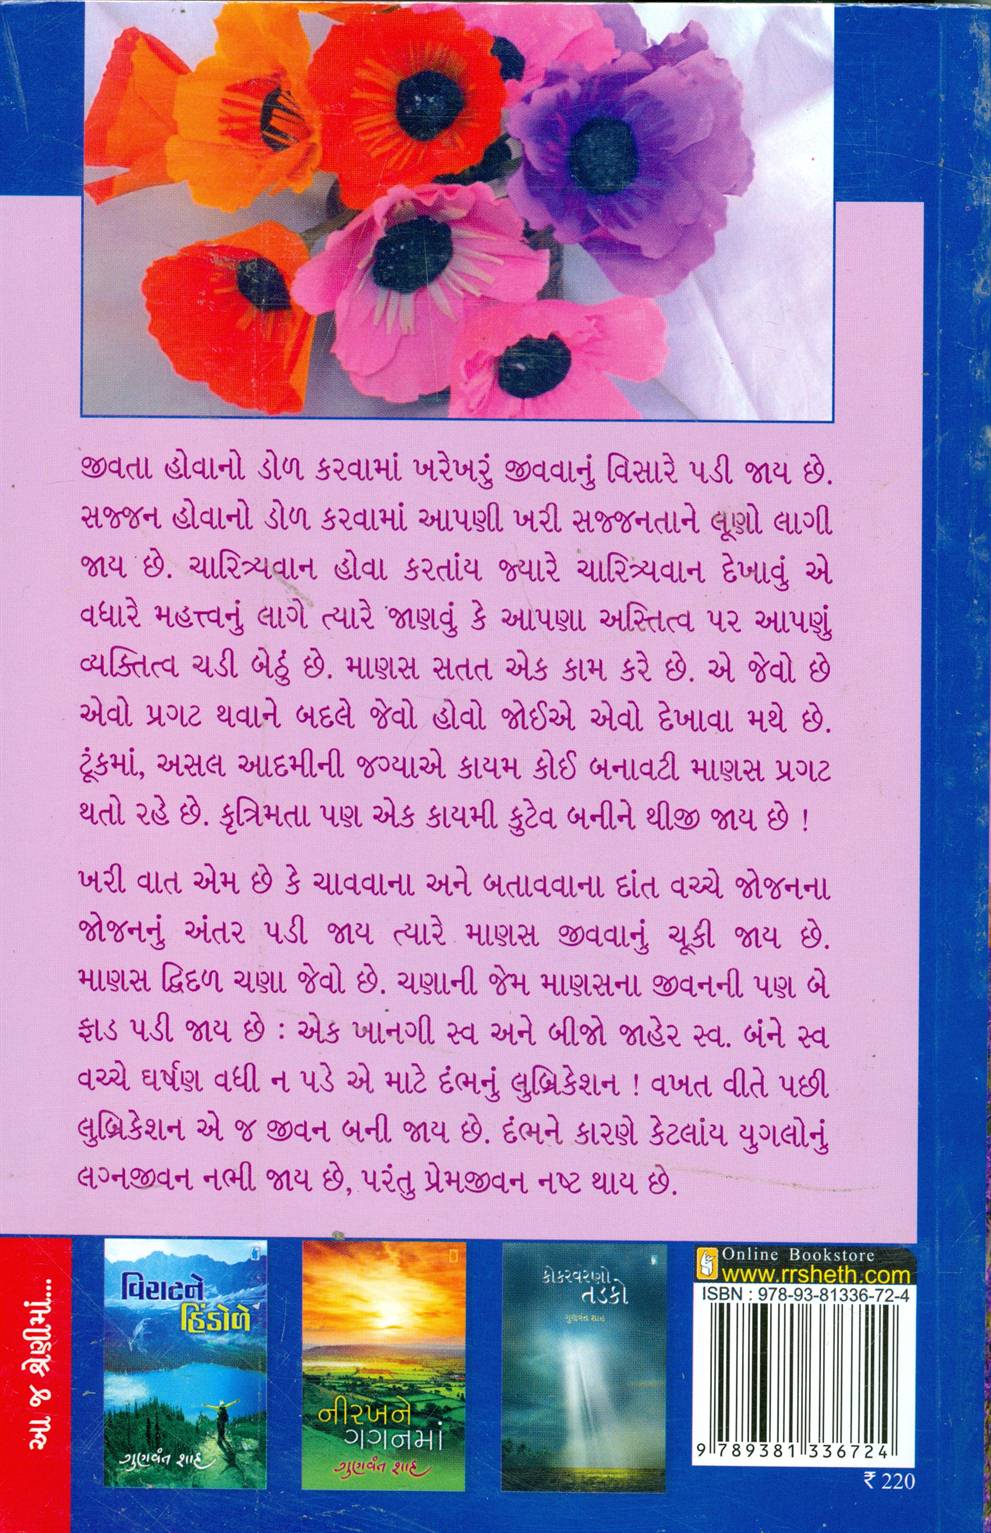 જીવતા હોવાનો ડોળ કરવામાં ખરેખરું જીવવાનું વિસારે પડી જાય છે.
સજ્જન હોવાનો ડોળ કરવામાં આપણી ખરી સજ્જનતાને લૂણો લાગી
જાય છે. ચારિત્ર્યવાન હોવા કરતાંય જ્યારે ચારિત્ર્યવાન દેખાવું એ
વધારે મહત્ત્વનું લાગે ત્યારે જાણવું કે આપણા અસ્તિત્વ પર આપણું
વ્યક્તિત્વ ચડી બેઠું છે. માણસ સતત એક કામ કરે છે. એ જેવો છે
એવો પ્રગટ થવાને બદલે જેવો હોવો જોઈએ એવો દેખાવા મથે છે.
ટૂંકમાં, અસલ આદમીની જગ્યાએ કાયમ કોઈ બનાવટી માણસ પ્રગટ
થતો રહે છે. કૃત્રિમતા પણ એક કાયમી કુટેવ બનીને થીજી જાય છે !
ખરી વાત એમ છે કે ચાવવાના અને બતાવવાના દાંત વચ્ચે જોજનના
જોજનનું અંતર પડી જાય ત્યારે માણસ જીવવાનું ચૂકી જાય છે.
માણસ દ્વિદળ ચણા જેવો છે. ચણાની જેમ માણસના જીવનની પણ બે
ફાડ પડી જાય છે : એક ખાનગી સ્વ અને બીજો જાહેર સ્વ. બંને સ્વ
વચ્ચે ઘર્ષણ વધી ન પડે એ માટે દંભનું લુબ્રિકેશન ! વખત વીતે પછી
લુબ્રિકેશન એ જ જીવન બની જાય છે. દંભને કારણે કેટલાંય યુગલોનું
લગ્નજીવન નભી જાય છે, પરંતુ પ્રેમજીવન નષ્ટ થાય છે.
આ જ શ્રેણીમાં...
વિરાટને
હિંડોળે
ગુણવંત શાહ
નીરખને
ગગનમાં
ગુણવંત શાહ
કોકરવરણો
તડકો
ગુણવંત શાહ
Online Bookstore
www.rrsheth.com
ISBN : 978-93-81336-72-4
9 789381 336724
₹ 220